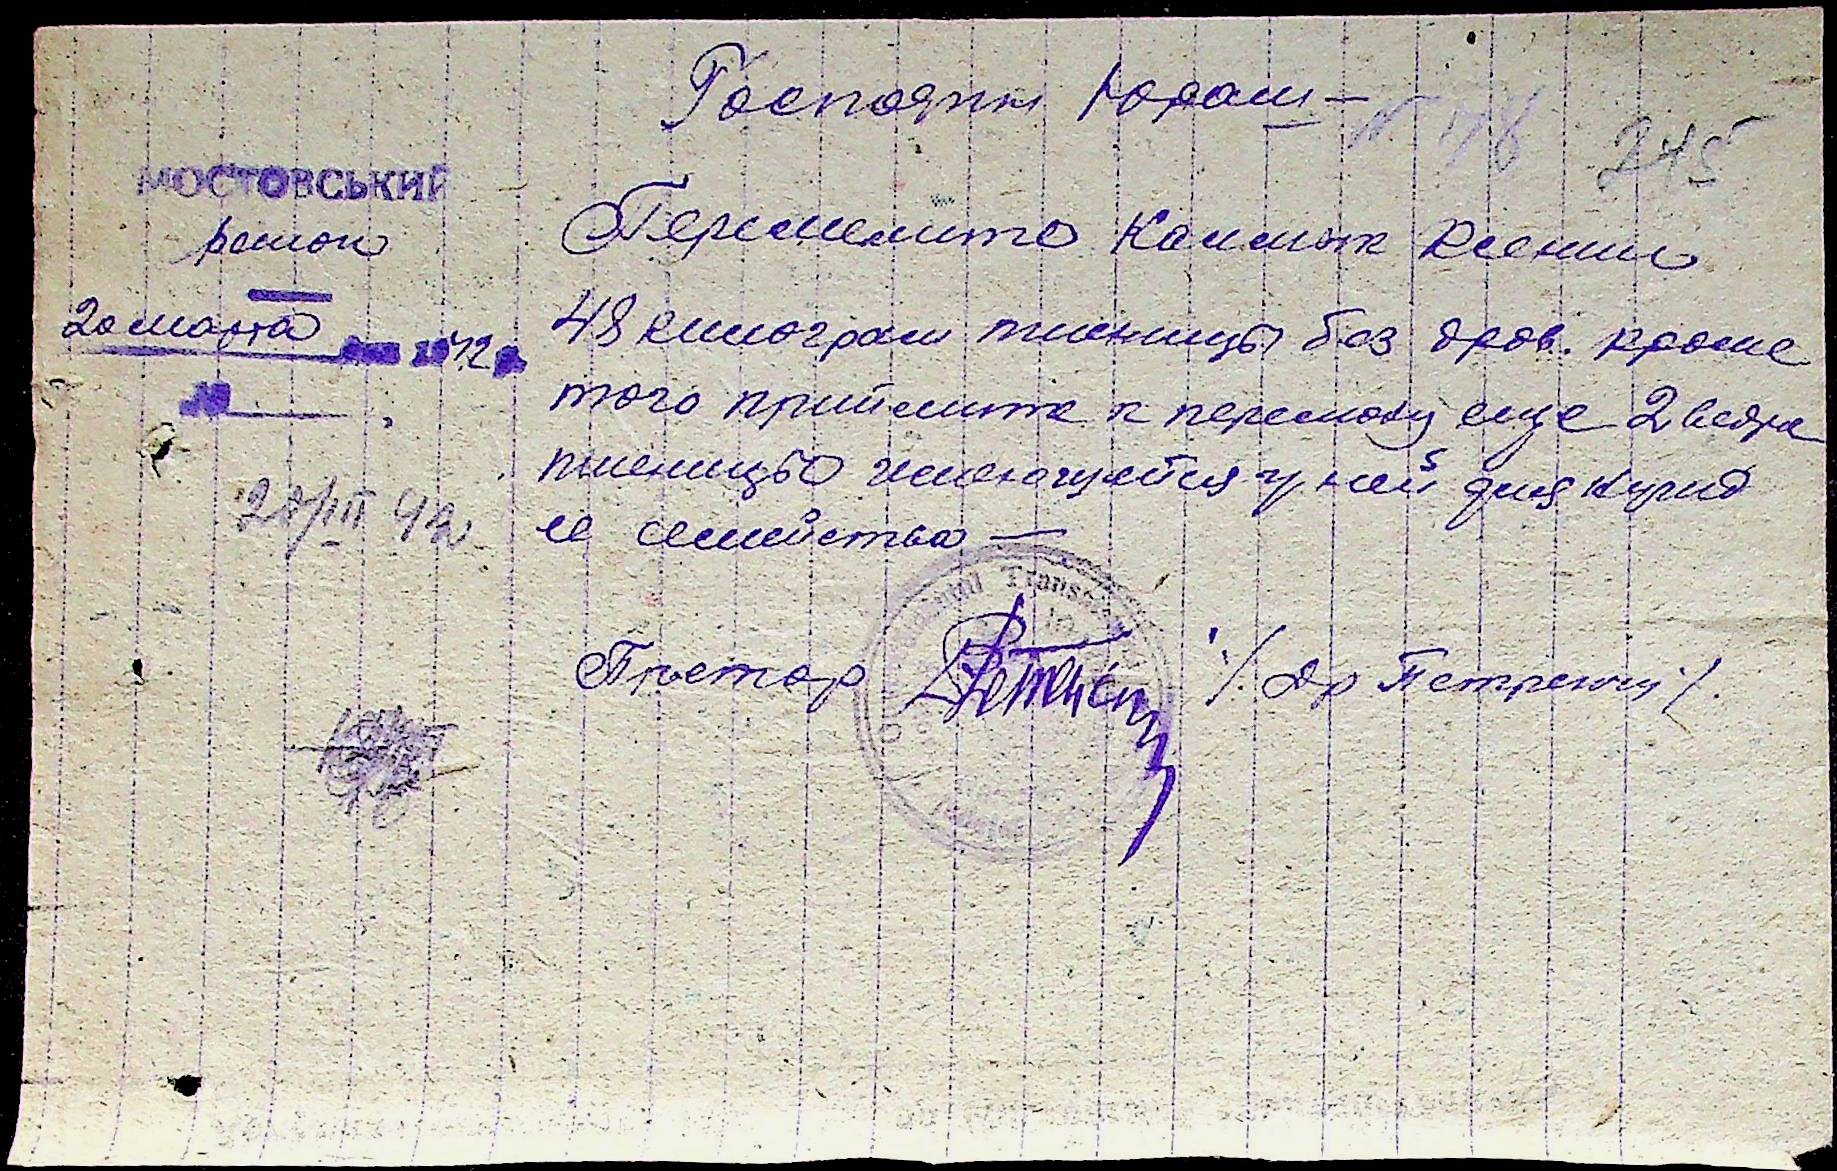 Господин Кораш —
№ 178 245
МОСТОВСЬКИЙ
район
20 марта 1942 р.
№
20/III 42
Перемелите Калмык Ксении
48 килограм пшеницы без дров. кроме
того приймите к перемолу еще 2 ведра
пшеницы имеющейся у ней для нужд
ее семейства —
Претор /. Др Петренчу /.
Transnis